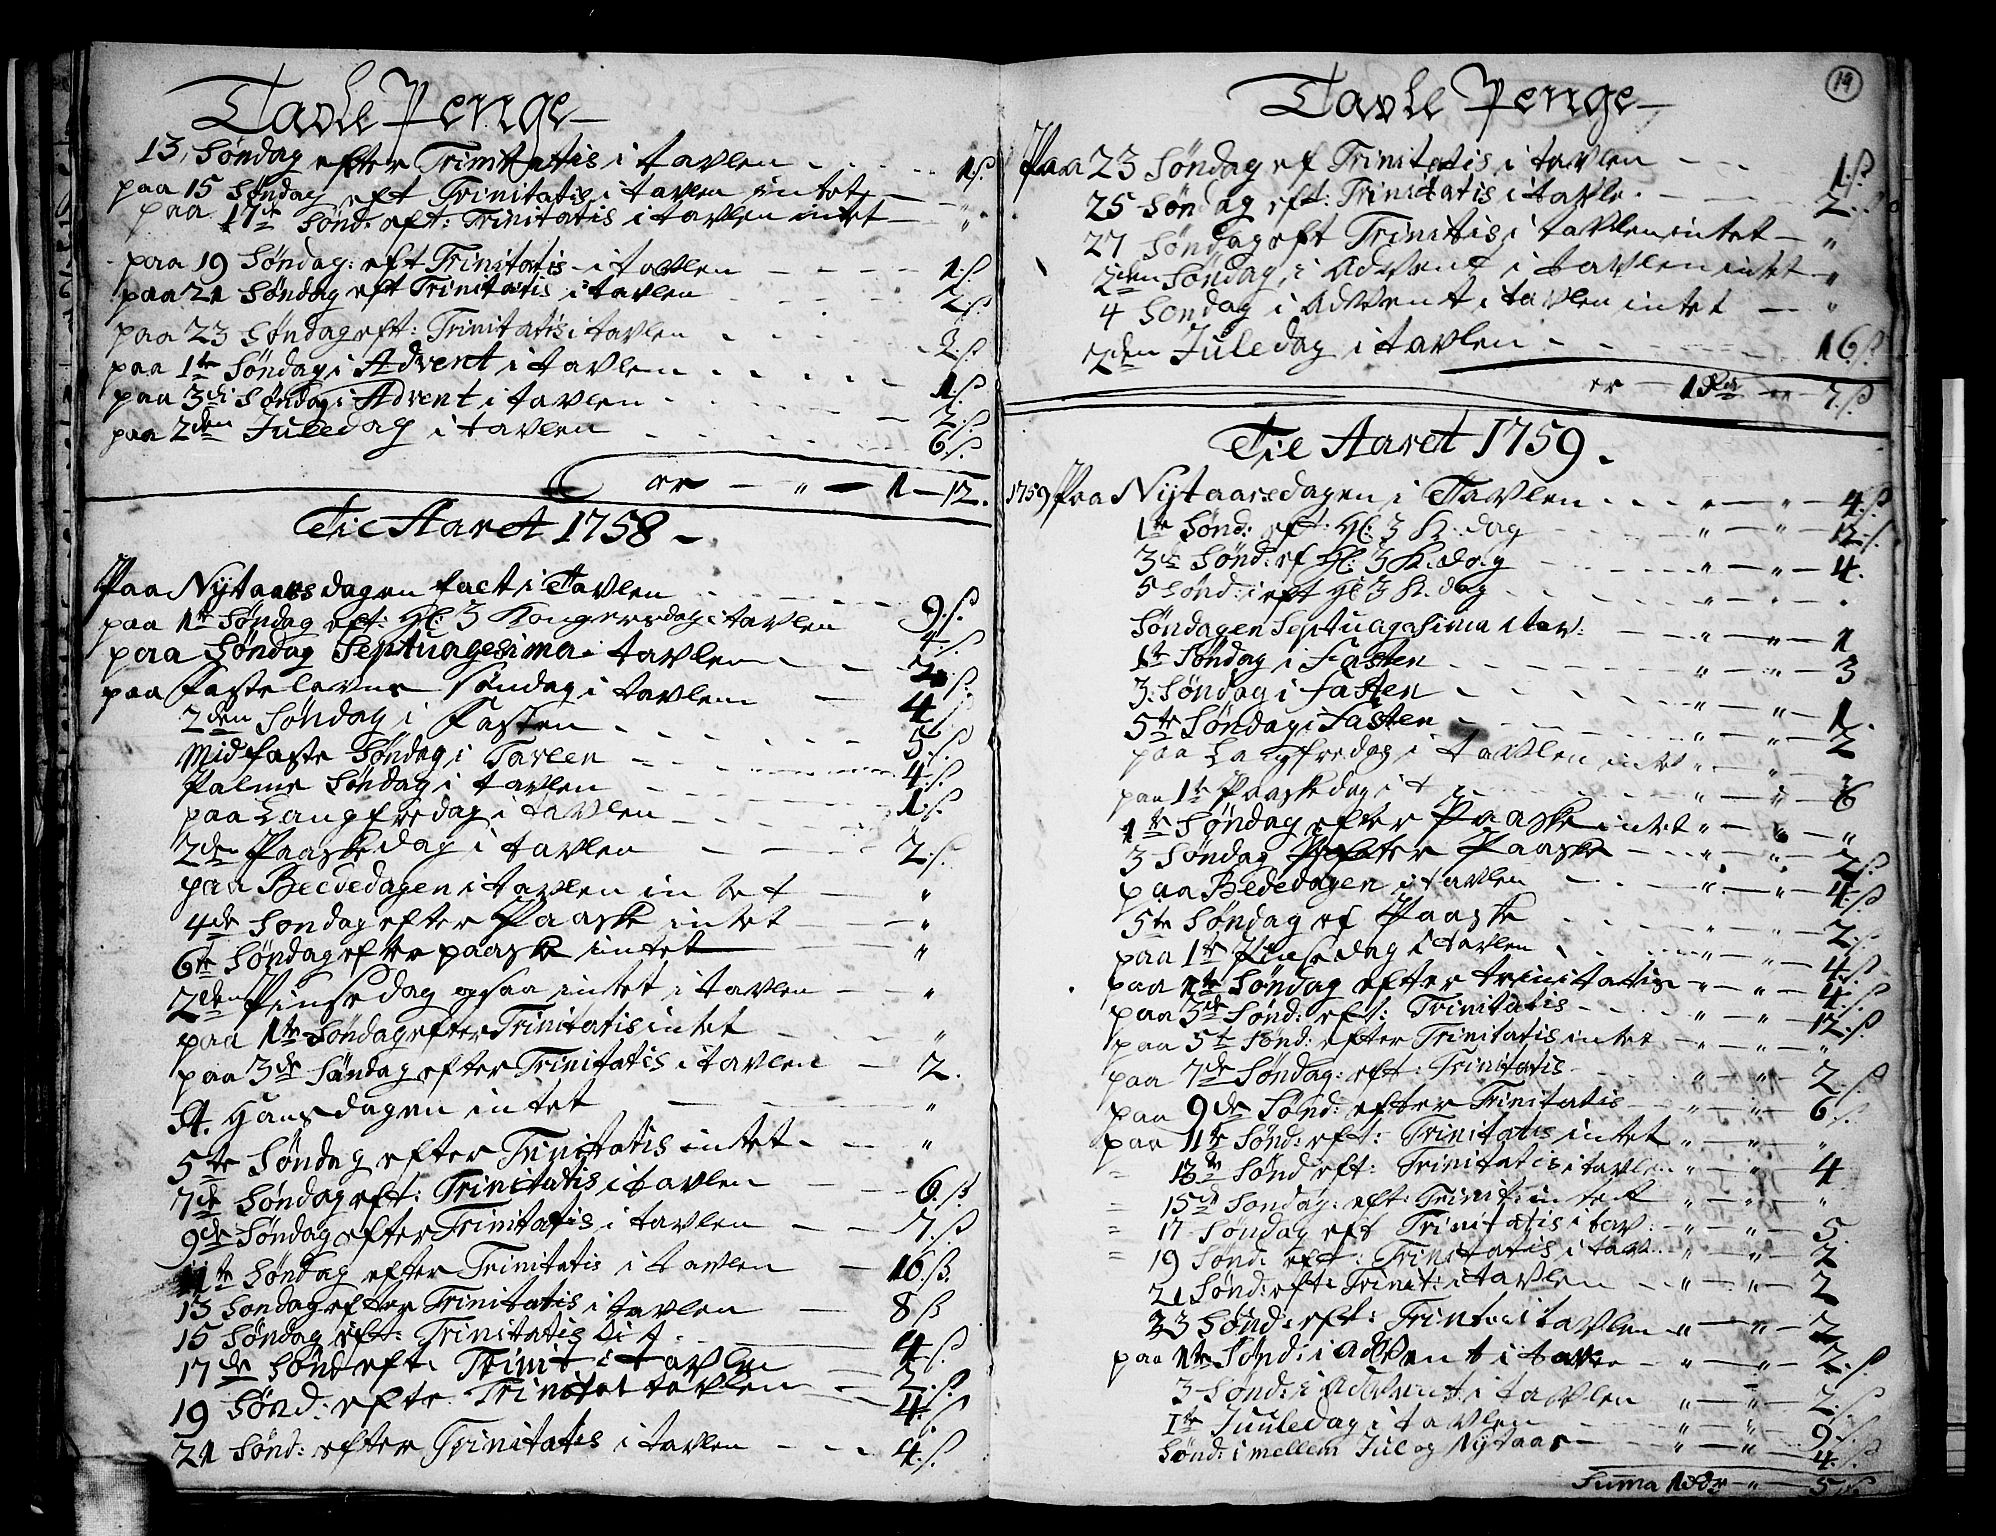 Tavle Penge
13, Søndag efter Trinitatis i tavlen 1 ß
paa 15 Søndag eft Trinitatis i tavlen intet "
paa 17de Sønd: eft: Trinitatis i tavlen intet "
paa 19 Søndag: eft Trinitatis i tavlen 1 ß
paa 21 Søndag eft Trinitatis i tavlen 2 ß
paa 23 Søndag eft: Trinitatis i tavlen 2 ß
paa 1te Søndag i Advent i tavlen 1 ß
paa 3di Søndag i Advent i tavlen 2 ß
paa 2den Juledag i tavlen 6 ß
er — " — 1 — 12.
Til Aaret 1758
Paa Nytaarsdagen falt i Tavlen 9 ß
paa 1te Søndag eft: Hl: 3 Kongersdag i tavlen 4 ß
paa Søndag Septuagesima i tavlen 2 ß
paa Fastelavns Søndag i tavlen 4 ß
2den Søndag i Fasten 5 ß
Midfaste Søndag i Tavlen 4 ß
Palme Søndag i tavlen 1 ß
paa Langfredag i tavlen
2den Paaskedag i tavlen 2 ß
paa Bededagen i tavlen intet "
4de Søndag efter Paaske intet "
6te Søndag efter paaske intet "
2den Pinsedag ogsaa intet i tavlen "
paa 1te Søndag efter Trinitatis intet "
paa 3de Søndag efter Trinitatis i tavlen 2.
St. Hansdagen intet "
5te Søndag efter Trinitatis intet "
7de Søndag eft: Trinitatis i tavlen 6 ß
9de Søndag efter Trinitatis i tavlen 7 ß
11te Søndag efter Trinitatis i tavlen 16 ß
13 Søndag efter Trinitatis i tavlen 8 ß
15 Søndag eft: Trinitatis 4 ß
17de Sønd eft: Trinit i tavlen 2 ß
19 Sønd: eftr Trinitat tavlen 4 ß
21 Sønd: efter Trinitatis i tavlen 4 ß
19
Tavle Penge
Paa 23 Søndag ef Trinitatis i tavlen 1 ß
25 Søndag eft: Trinitatis i tavle 2
27 Søndag eft Trinitis i tavlen intet "
2den Søndag i Advent i tavlen intet "
4 Søndag i Advent i tavlen intet "
2den Juledag i tavlen 16 ß
er — 1 Rdr — 7 ß
Til Aaret 1759.
1759 Paa Nytaarsdagen i Tavlen " — " — 4 ß
1te Sønd: eft: Hl: 3 K. dag " — " — 12 ß
3de Sønd: ef Hl: 3 K. dag " — " — 4.
5 Sønd: i eft Hl 3 K. dag " — " —
Søndagen Septuagasima i tav: " — " — 1
1te Søndag i Fasten " — " — 3
3: Søndag i fasten " — " — 1.
5te Søndag i Fasten " — " — 2
paa Langfredag i tavlen intet " — "
paa 1te Paaskedag i t " — " — 6
1te Søndag efter Paaske intet " — " — "
3 Søndag efter Paaske " — " — 2 ß
paa Bededagen i tavlen " — " — 4 ß
5te Søndag ef Paaske " — " — 2
paa 1te Pinsedag i tavlen " — " — 4 ß
paa 1te Søndag efter trinitatis " — " — 4 ß
paa 3de Sønd: eft: Trinitatis " — " — 12 ß
paa 5te Sønd: efter Trinitatis intet " — " — "
paa 7de Søndag: eft: Trinitatis " — " — 2 ß
paa 9de Sønd: efter Trinitatis " — " — 6 ß
paa 11te Sønd: eft: Trinitatis intet " — " — "
= 13de Sønd eft: Trinitatis i tavlen " — " — 4
= 15 Søndag: eft: Trinit: intet " — " — "
= 17 Søndag eft Trinitatis i tav: " — " — 5.
= 19 Sønd: eft: Trinitatis i tavl " — " — 2
21 Sønd: eft: Trinit: i tavlen " — " — 2
23 Sønd: eft: Trinitat: i tavlen " — " — 2
paa 1te Sønd: i Advent i tavle " — " — 2 ß
3 Sønd: i Advent i tavlen " — " — 2 ß
1te Juuledag i tavlen " — " — 9 ß
Sønd: imellem Jul og Nytaar " — " — 4 ß
Suma 1 Rdr — " — 5 ß